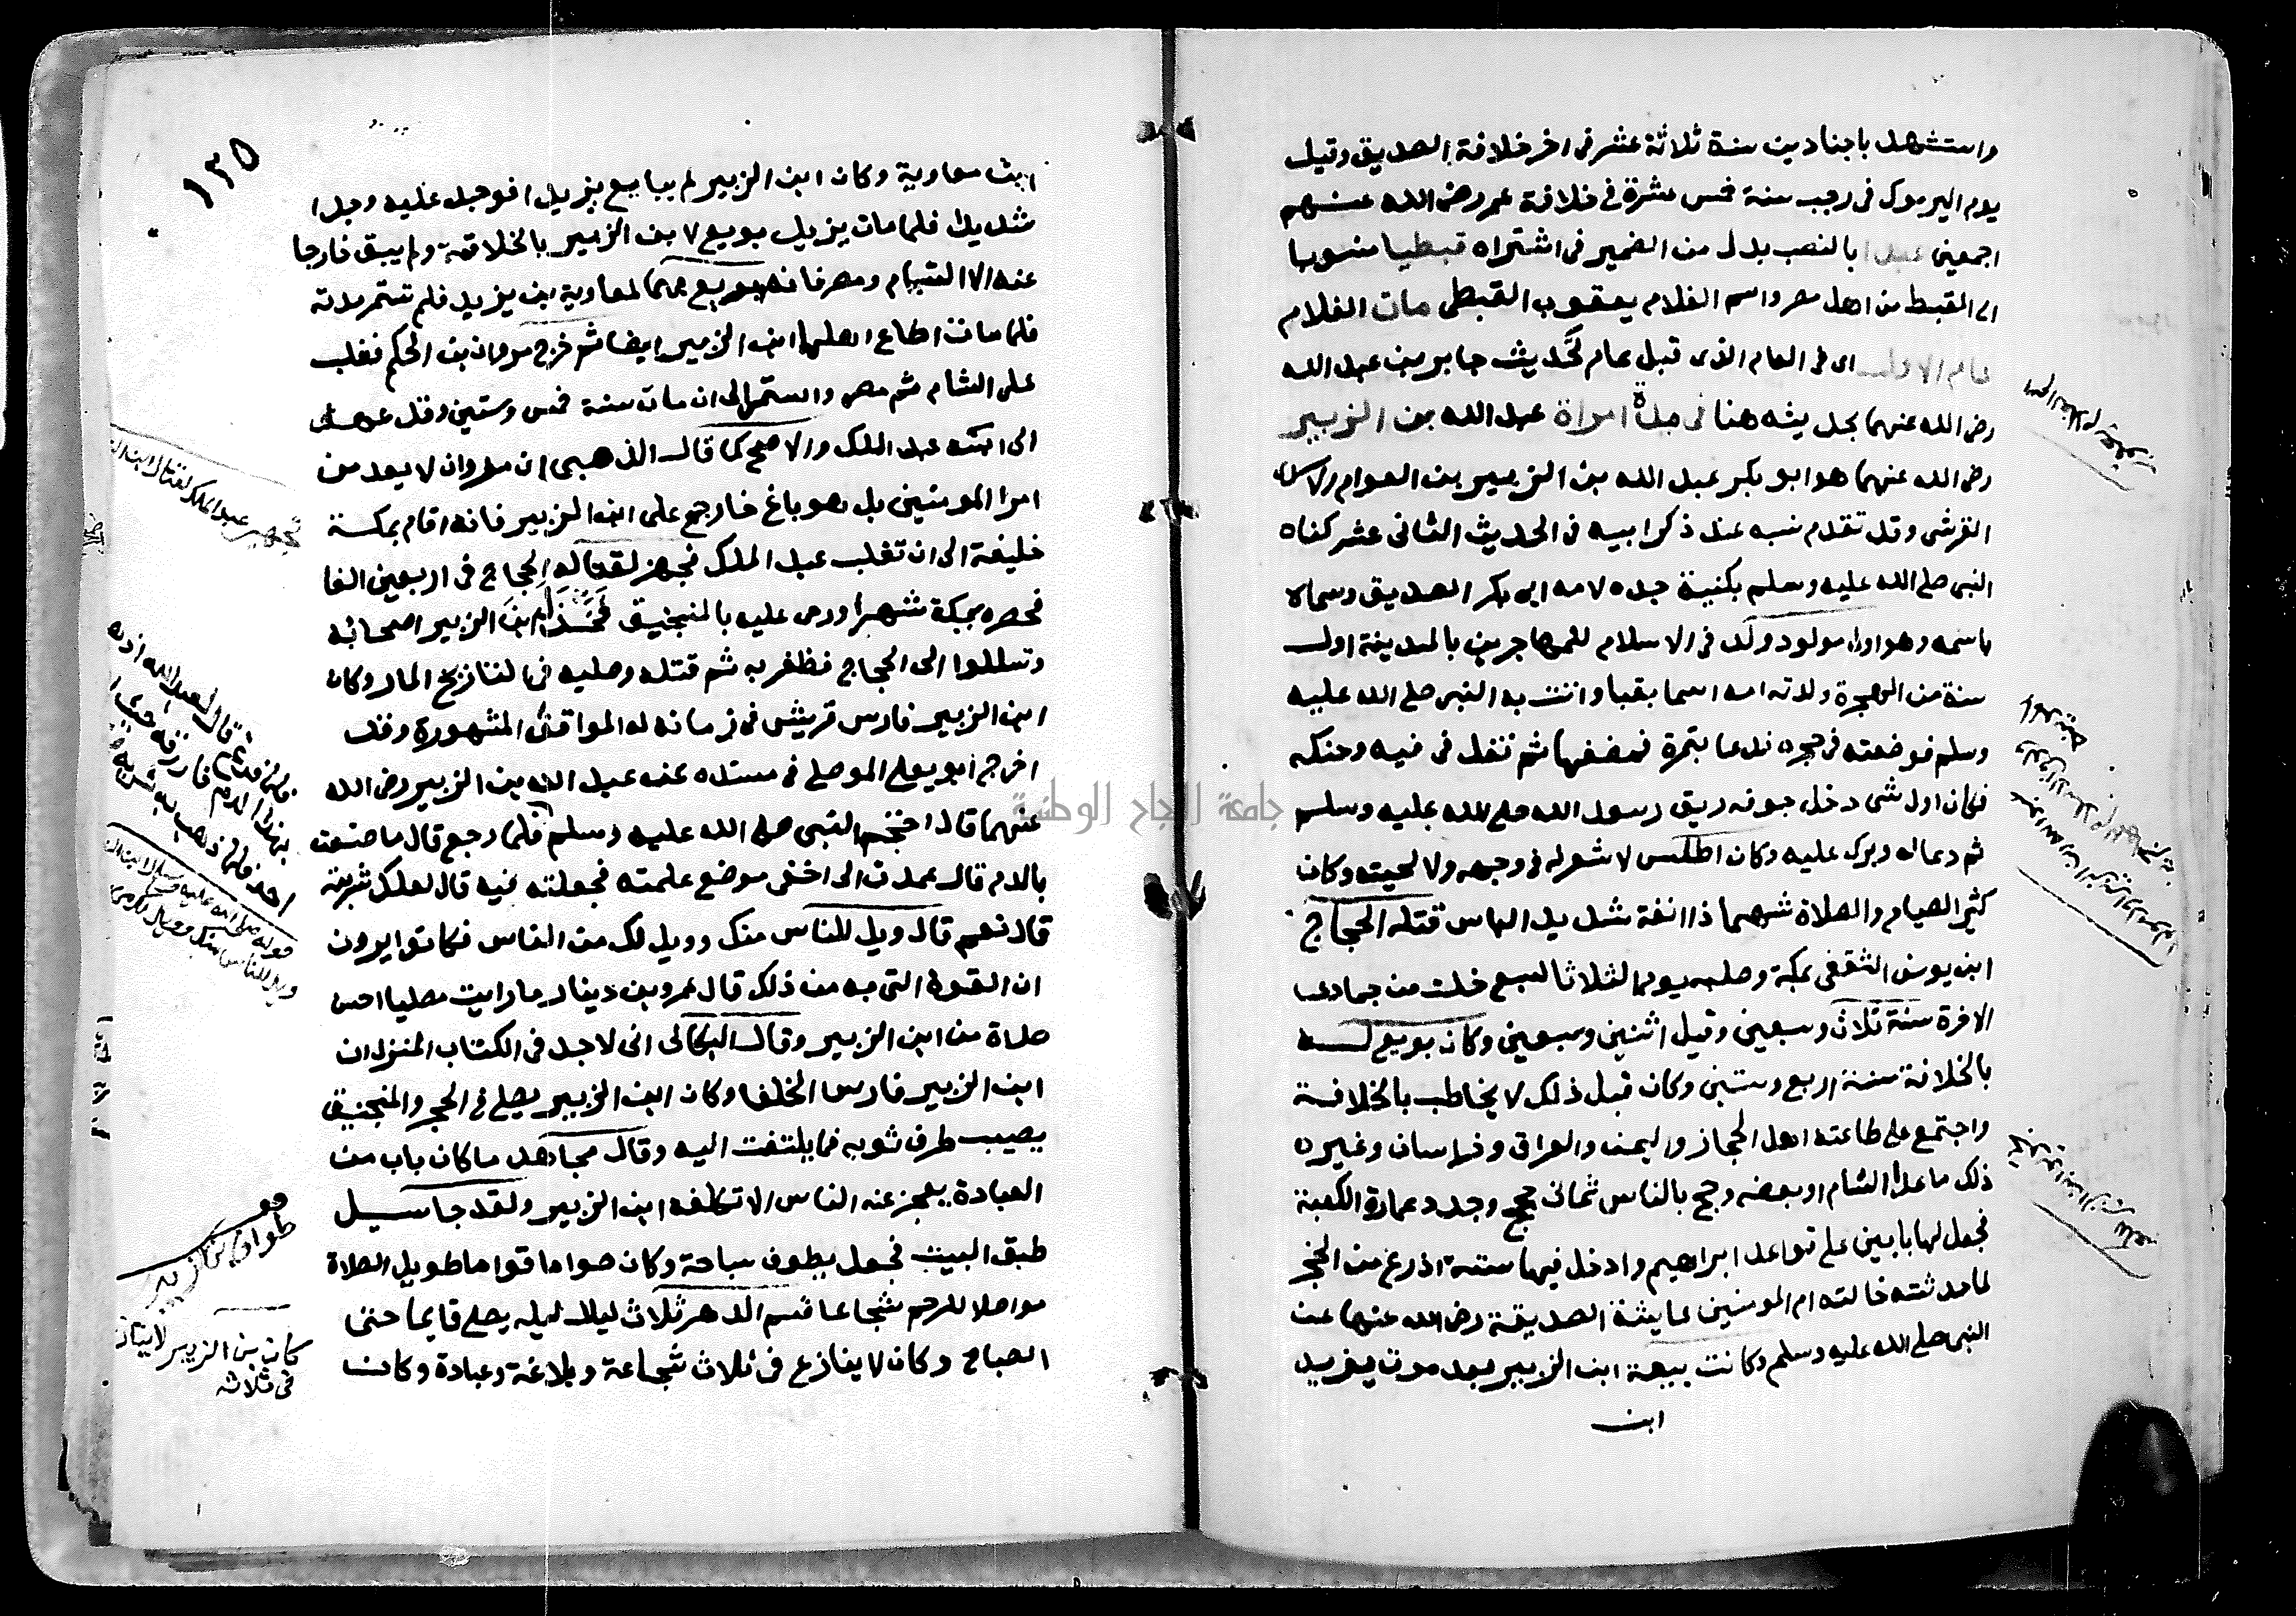 واستشهد باجنادين سنة ثلاثة عشر في اخر خلافة الصديق وقيل
يوم اليرموك في رجب سنة خمس عشرة في خلافة عمر رضي الله عنهم
اجمعين عبدا بالنصب بدل من الضمير في اشتراه قبطيا منسوبا
الى القبط من اهل مصر واسم الغلام يعقوب القبطي مات الغلام
عام الاول اى في العام الذى قبل عام تحديث جابر بن عبد الله
رضي الله عنهما بحديثه هنا في مدة امراة عبد الله بن الزبير
رضي الله عنهما هو ابو بكر عبد الله بن الزبير بن العوام الاسدى
القرشي وقد تقدم نسبه عند ذكر ابيه في الحديث الثاني عشر كناه
النبي صلى الله عليه وسلم بكنية جده لامه ابي بكر الصديق وسماه
باسمه وهو اول مولود ولد في الاسلام للمهاجرين بالمدينة اول
سنة من الهجرة ولدته امه اسما بقبا واتت به النبي صلى الله عليه
وسلم فوضعته في حجره فدعا بتمرة فمضغها ثم تفل في فيه وحنكه
فكان اول شي دخل جوفه ريق رسول الله صلى الله عليه وسلم
ثم دعا له وبرك عليه وكان اطلس لا شعر له في وجهه ولا لحيته وكان
كثير الصيام والصلاة شهما ذا انفة شديد الباس قتله الحجاج
ابن يوسف الثقفي بمكة وصلبه يوم الثلاثا لسبع خلت من جمادى
الاخرة سنة ثلاث وسبعين وقيل اثنين وسبعين وكان بويع له
بالخلافة سنة اربع وستين وكان قبل ذلك لا يخاطب بالخلافة
واجتمع على طاعته اهل الحجاز واليمن والعراق وخراسان وغيره
ذلك ما عدا الشام او بعضه وحج بالناس ثماني حجج وجدد عمارة الكعبة
فجعل لها بابين على قواعد ابراهيم وادخل فيها ستة اذرع من الحجر
لما حدثته خالته ام المومنين عايشة الصديقة رضي الله عنها عن
النبي صلى الله عليه وسلم وكانت بيعة ابن الزبير بعد موت يزيد
ابن
١٣٥
ابن معاوية وكان ابن الزبير لم يبايع يزيد افوجد عليه وجدا
شديدا فلما مات يزيد بويع لابن الزبير بالخلافة ولم يبق خارجا
عنه الا الشام ومصر فانه بويع بهما لمعاوية بن يزيد فلم تستمر مدته
فلما مات اطاع اهلها ابن الزبير ايضا ثم خرج مروان بن الحكم فغلب
على الشام ثم مصر واستمر الى ان مات سنة خمس وستين وقد عهد
الى ابنه عبد الملك والاصح كما قال الذهبي ان مروان لا يعد من
امرا المومنين بل هو باغ خارج على ابن الزبير فانه اقام بمكة
خليفة الى ان تغلب عبد الملك فجهز لقتاله الحجاج في اربعين الفا
فحصره بمكة شهرا ورمى عليه بالمنجنيق فخذل ابن الزبير اصحابه
وتسللوا الى الحجاج فظفر به ثم قتله وصلبه في التاريخ المار وكان
ابن الزبير فارس قريش في زمانه له المواقف المشهورة وقد
اخرج ابو يعلي الموصلي في مسنده عنه عبد الله بن الزبير رضي الله
عنهما قال احتجم النبي صلى الله عليه وسلم فلما رجع قال ما صنعت
بالدم قال عمدت الى اخفى موضع علمته فجعلته فيه قال لعلك شربته
قال نعم قال ويل للناس منك وويل لك من الناس فكانوا يرون
ان القوة التي به من ذلك قال عمرو بن دينار ما رايت مصليا احسن
صلاة من ابن الزبير وقال البكالى اني لاجد في الكتاب المنزل ان
ابن الزبير فارس الخلفا وكان ابن الزبير يصلي في الحجر والمنجنيق
يصيب طرف ثوبه فما يلتفت اليه وقال مجاهد ما كان باب من
العبادة يعجز عنه الناس الا تكلفه ابن الزبير ولقد جا سيل
طبق البيت فجعل يطوف سباحة وكان صواما قواما طويل الصلاة
مواصلا للرحم شجاعا قسم الدهر ثلاث ليال ليله يصلي قايما حتى
الصباح وكان لا ينازع في ثلاث شجاعة وبلاغة وعبادة وكان
كان بن الزبير لا ينازع
في ثلاثه
جامعة النجاح الوطنية